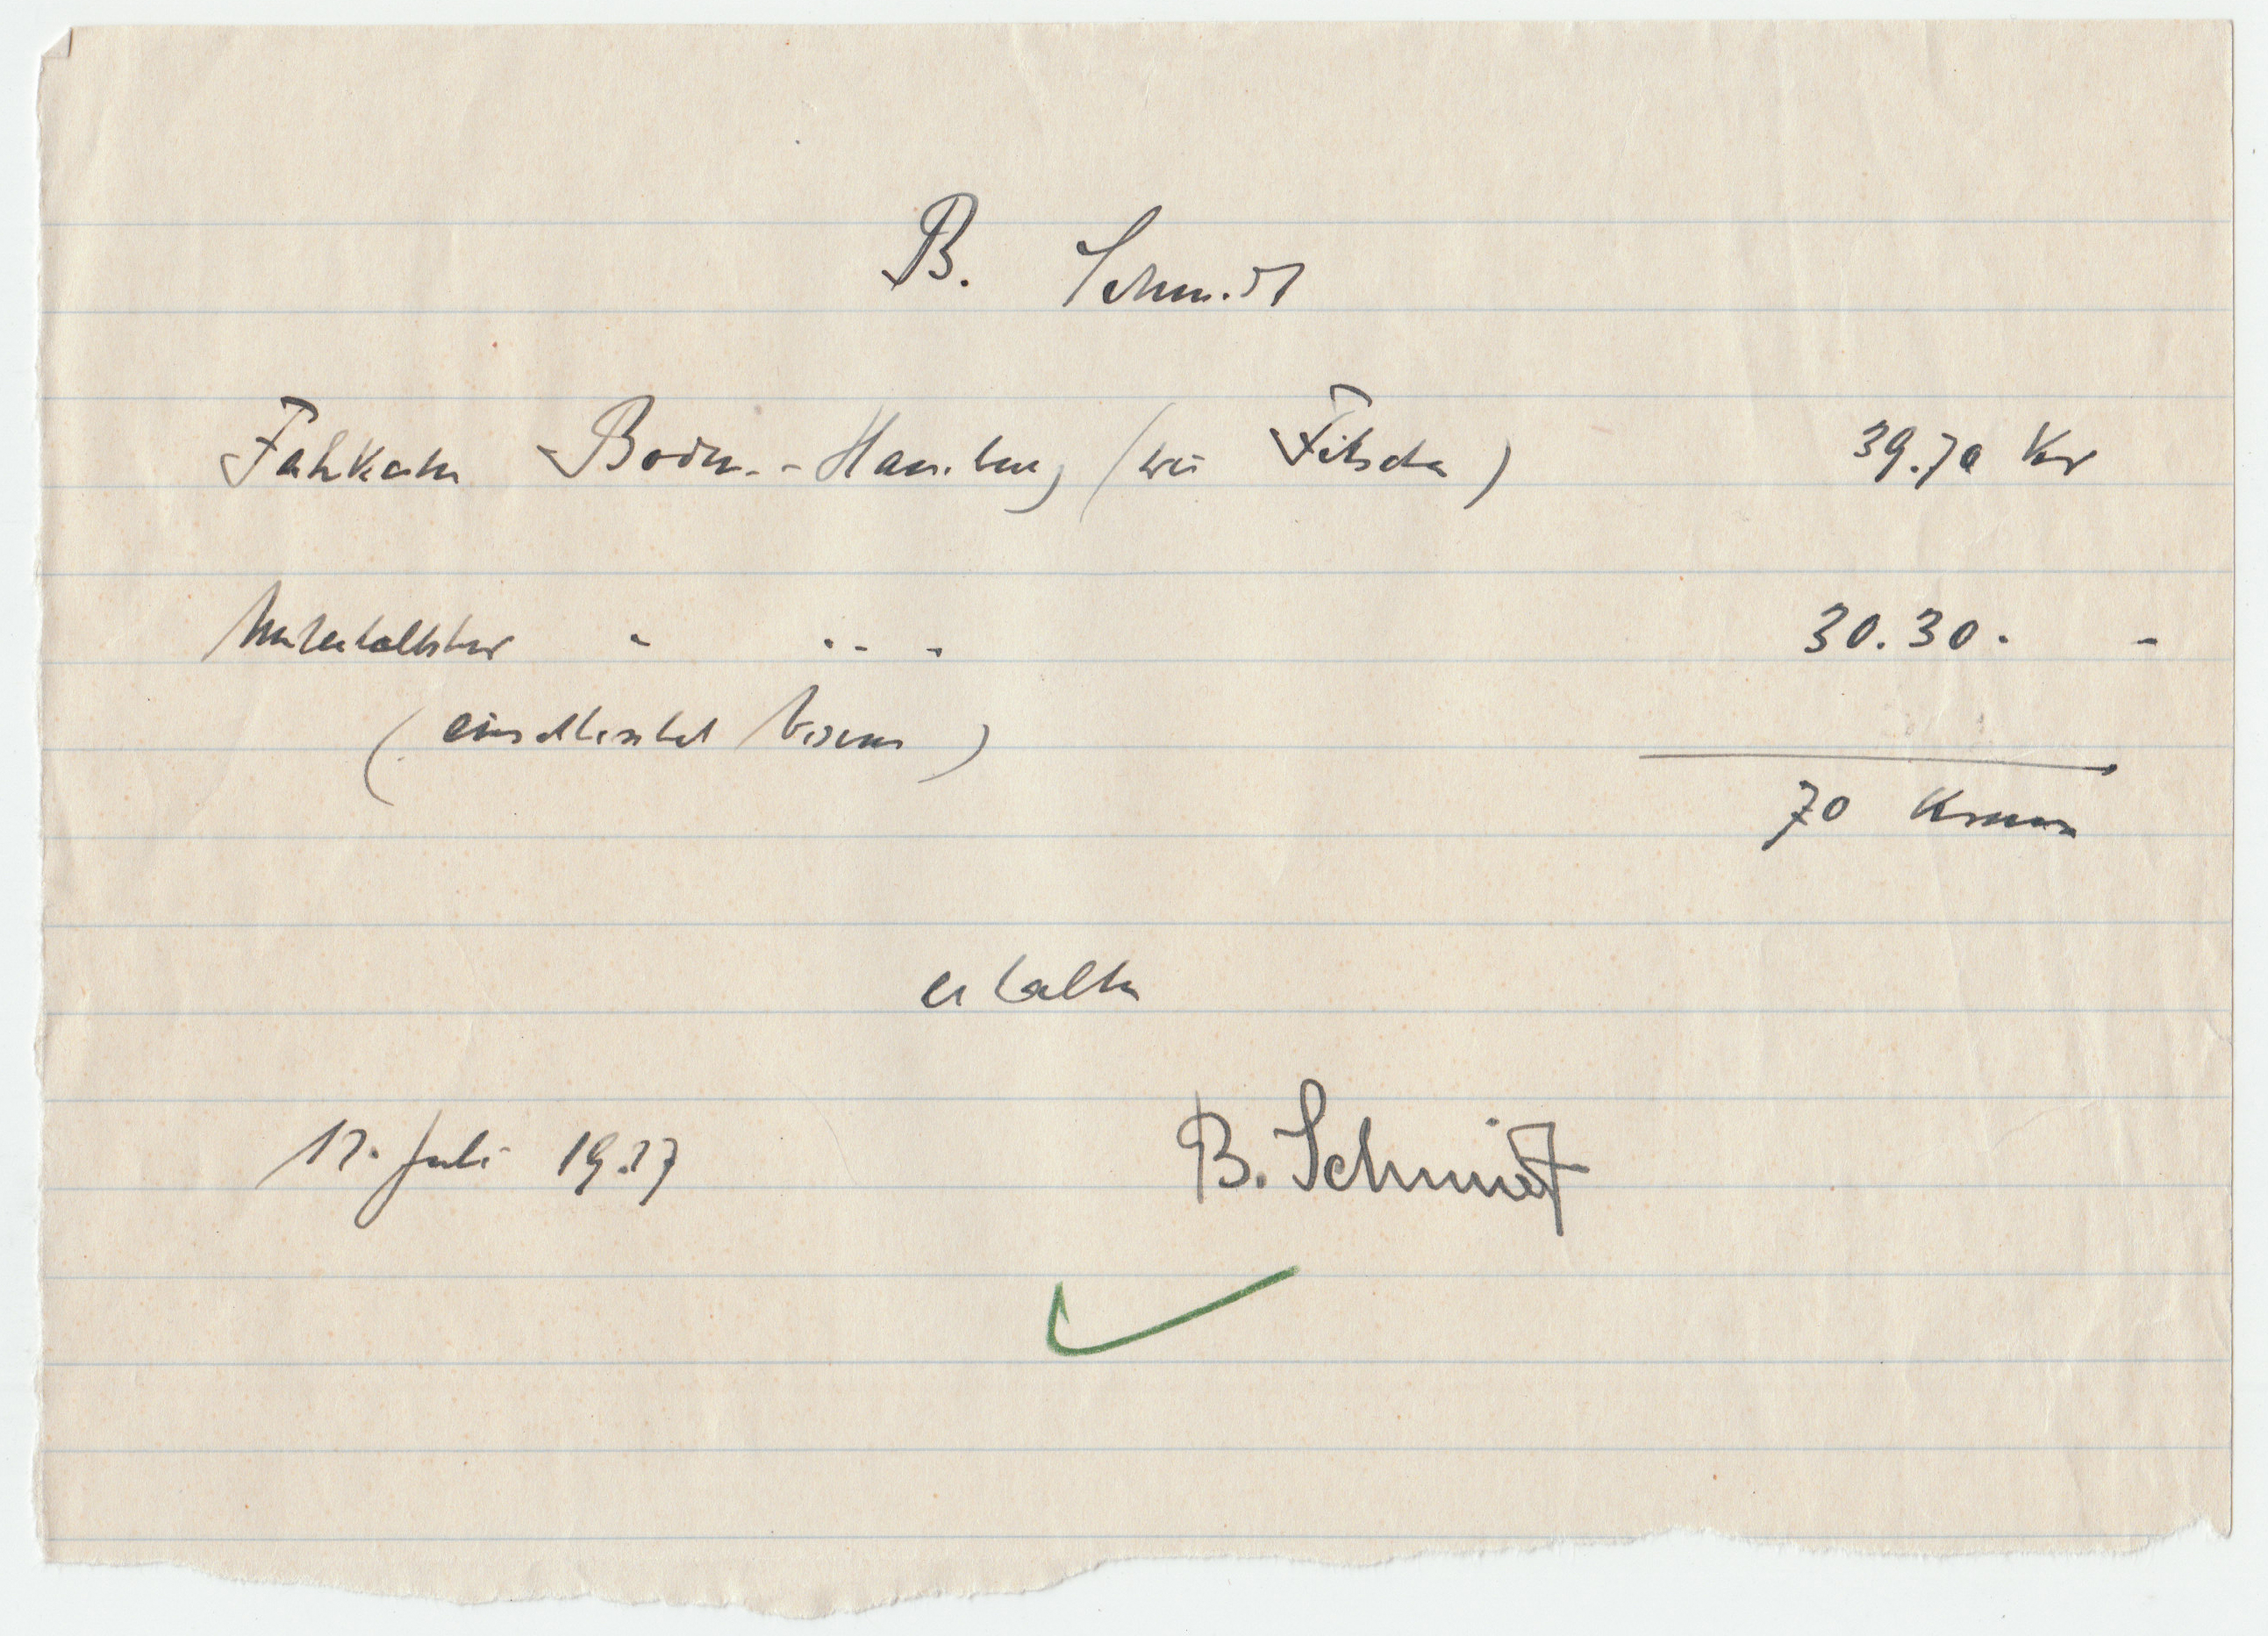 B. Schmidt
Fahrkarte Bodø - Hamburg (wie Fitscher) 39.70 Kr
Unterhaltskosten " " - " 30.30. -
(einschliesslich Visum)
70 Kronen
erhalten
17. Juli 1937 B. Schmidt